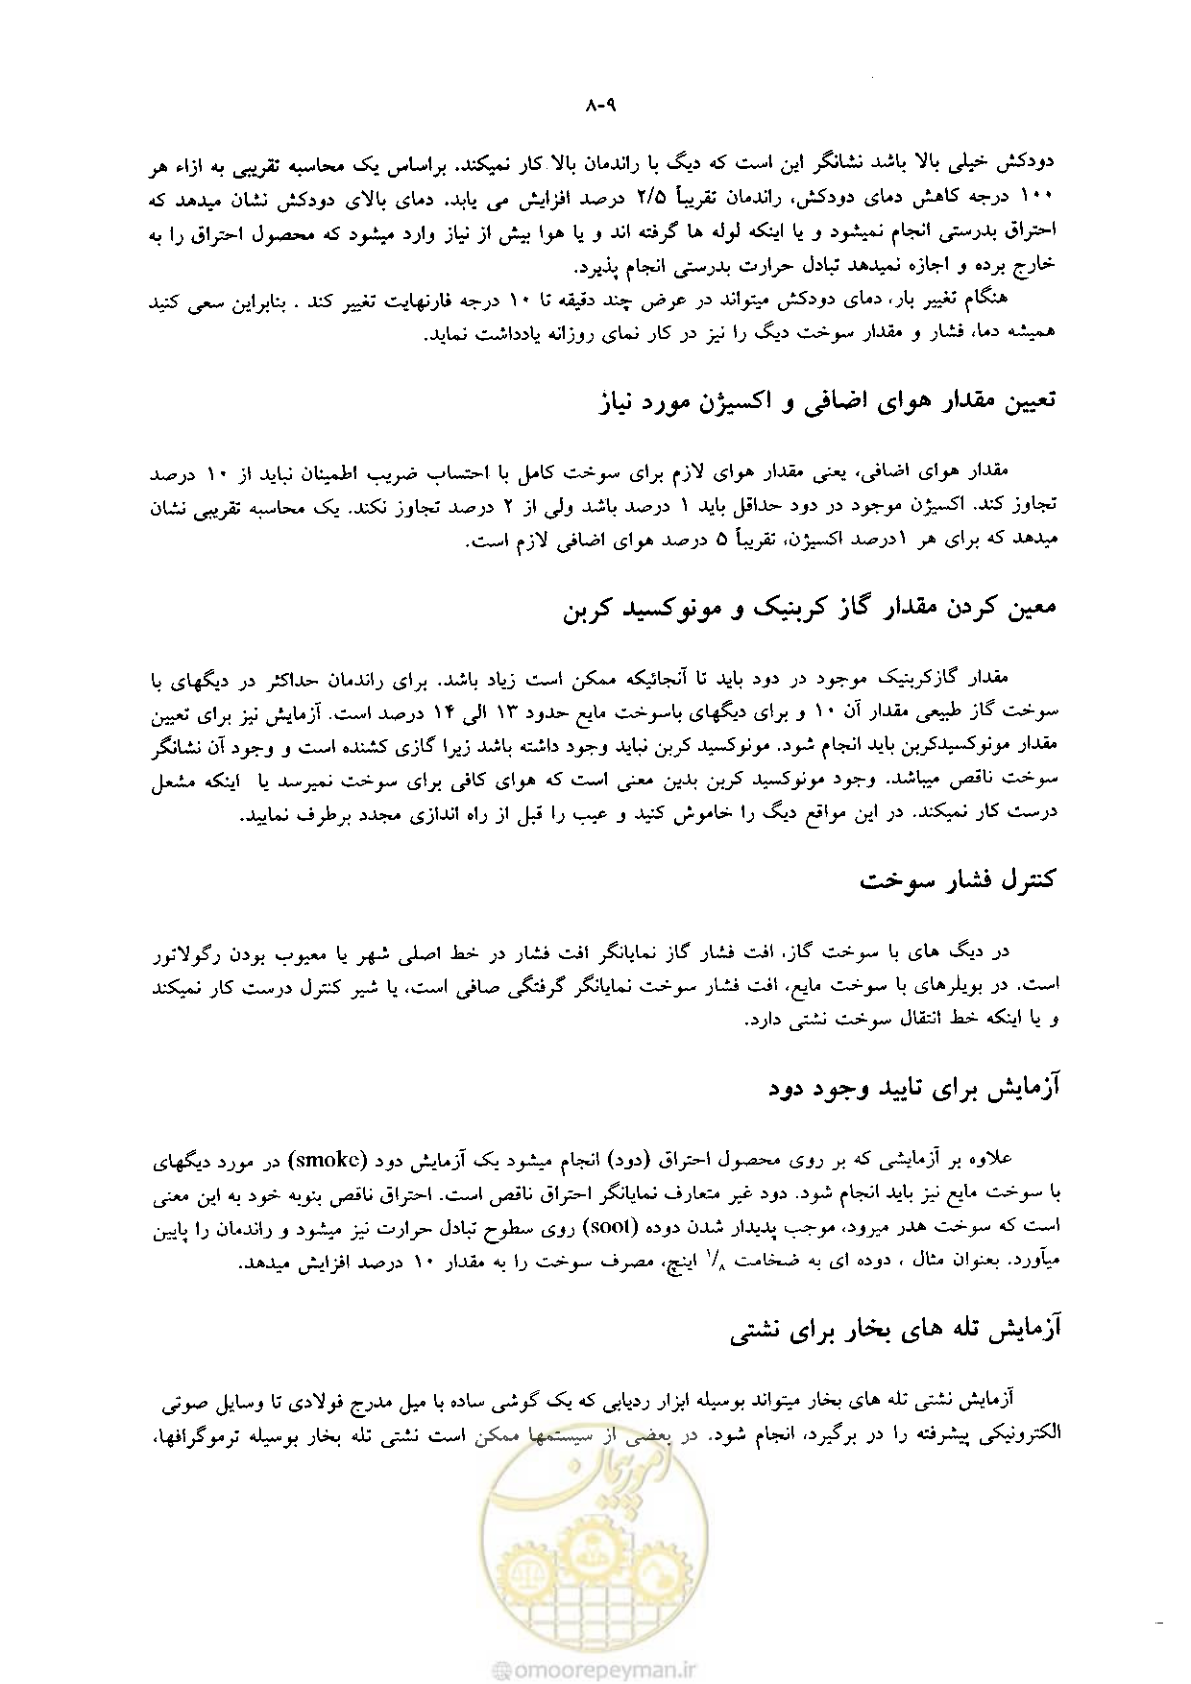 ۸-۹
دودکش خیلی بالا باشد نشانگر این است که دیگ با راندمان بالا کار نمیکند. براساس یک محاسبه تقریبی به ازاء هر
۱۰۰ درجه کاهش دمای دودکش، راندمان تقریباً ۲/۵ درصد افزایش می یابد. دمای بالای دودکش نشان میدهد که
احتراق بدرستی انجام نمیشود و یا اینکه لوله ها گرفته اند و یا هوا بیش از نیاز وارد میشود که محصول احتراق را به
خارج برده و اجازه نمیدهد تبادل حرارت بدرستی انجام پذیرد.
هنگام تغییر بار، دمای دودکش میتواند در عرض چند دقیقه تا ۱۰ درجه فارنهایت تغییر کند . بنابراین سعی کنید
همیشه دما، فشار و مقدار سوخت دیگ را نیز در کار نمای روزانه یادداشت نماید.
تعیین مقدار هوای اضافی و اکسیژن مورد نیاز
مقدار هوای اضافی، یعنی مقدار هوای لازم برای سوخت کامل با احتساب ضریب اطمینان نباید از ۱۰ درصد
تجاوز کند. اکسیژن موجود در دود حداقل باید ۱ درصد باشد ولی از ۲ درصد تجاوز نکند. یک محاسبه تقریبی نشان
میدهد که برای هر ۱درصد اکسیژن، تقریباً ۵ درصد هوای اضافی لازم است.
معین کردن مقدار گاز کربنیک و مونوکسید کربن
مقدار گازکربنیک موجود در دود باید تا آنجائیکه ممکن است زیاد باشد. برای راندمان حداکثر در دیگهای با
سوخت گاز طبیعی مقدار آن ۱۰ و برای دیگهای باسوخت مایع حدود ۱۳ الی ۱۴ درصد است. آزمایش نیز برای تعیین
مقدار مونوکسیدکربن باید انجام شود. مونوکسید کربن نباید وجود داشته باشد زیرا گازی کشنده است و وجود آن نشانگر
سوخت ناقص میباشد. وجود مونوکسید کربن بدین معنی است که هوای کافی برای سوخت نمیرسد یا اینکه مشعل
درست کار نمیکند. در این مواقع دیگ را خاموش کنید و عیب را قبل از راه اندازی مجدد برطرف نمایید.
کنترل فشار سوخت
در دیگ های با سوخت گاز، افت فشار گاز نمایانگر افت فشار در خط اصلی شهر یا معیوب بودن رگولاتور
است. در بویلرهای با سوخت مایع، افت فشار سوخت نمایانگر گرفتگی صافی است، یا شیر کنترل درست کار نمیکند
و یا اینکه خط انتقال سوخت نشتی دارد.
آزمایش برای تایید وجود دود
علاوه بر آزمایشی که بر روی محصول احتراق (دود) انجام میشود یک آزمایش دود (smoke) در مورد دیگهای
با سوخت مایع نیز باید انجام شود. دود غیر متعارف نمایانگر احتراق ناقص است. احتراق ناقص بنوبه خود به این معنی
است که سوخت هدر میرود، موجب پدیدار شدن دوده (soot) روی سطوح تبادل حرارت نیز میشود و راندمان را پایین
میآورد. بعنوان مثال ، دوده ای به ضخامت ۱/۸ اینچ، مصرف سوخت را به مقدار ۱۰ درصد افزایش میدهد.
آزمایش تله های بخار برای نشتی
آزمایش نشتی تله های بخار میتواند بوسیله ابزار ردیابی که یک گوشی ساده با میل مدرج فولادی تا وسایل صوتی
الکترونیکی پیشرفته را در برگیرد، انجام شود. در بعضی از سیستمها ممکن است نشتی تله بخار بوسیله ترموگرافها،
امور پیمان
@omoorepeyman.ir